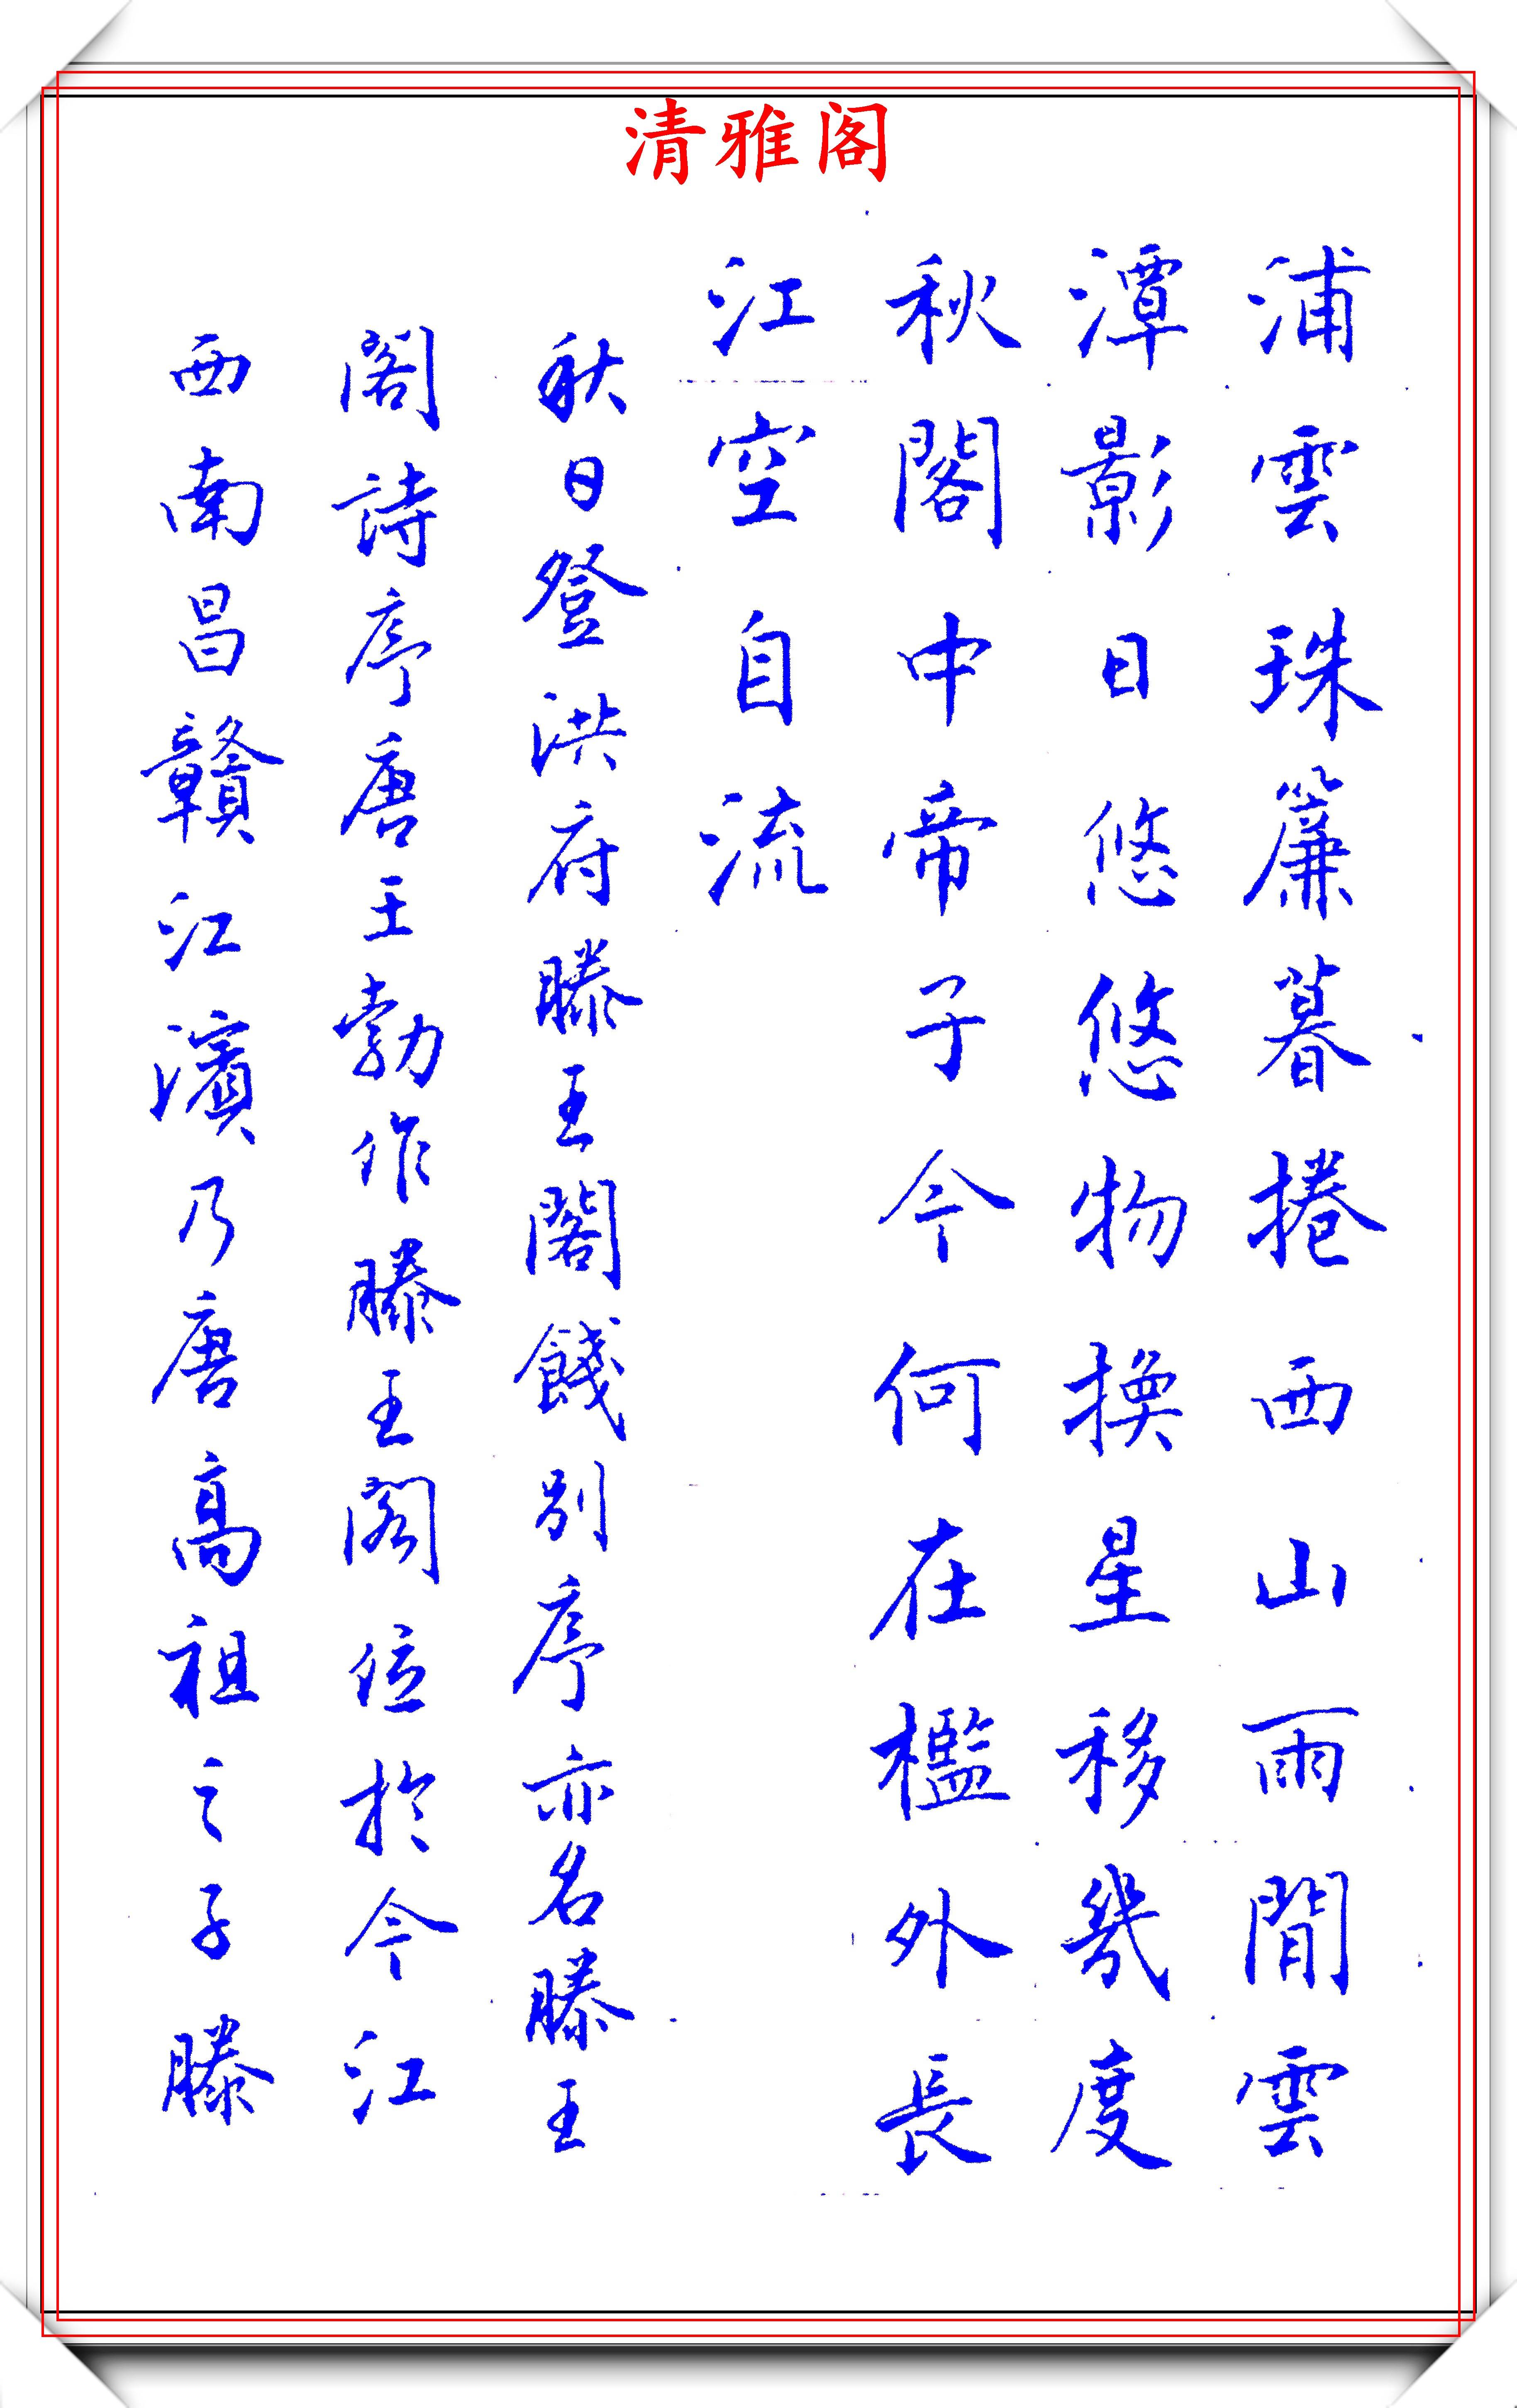 清雅阁
浦雲珠簾暮捲西山雨閒雲
潭影日悠悠物換星移幾度
秋閣中帝子今何在檻外長
江空自流
秋日登洪府滕王閣餞別序亦名滕王
閣詩序唐王勃作滕王閣位於今江
西南昌贛江濱乃唐高祖之子滕